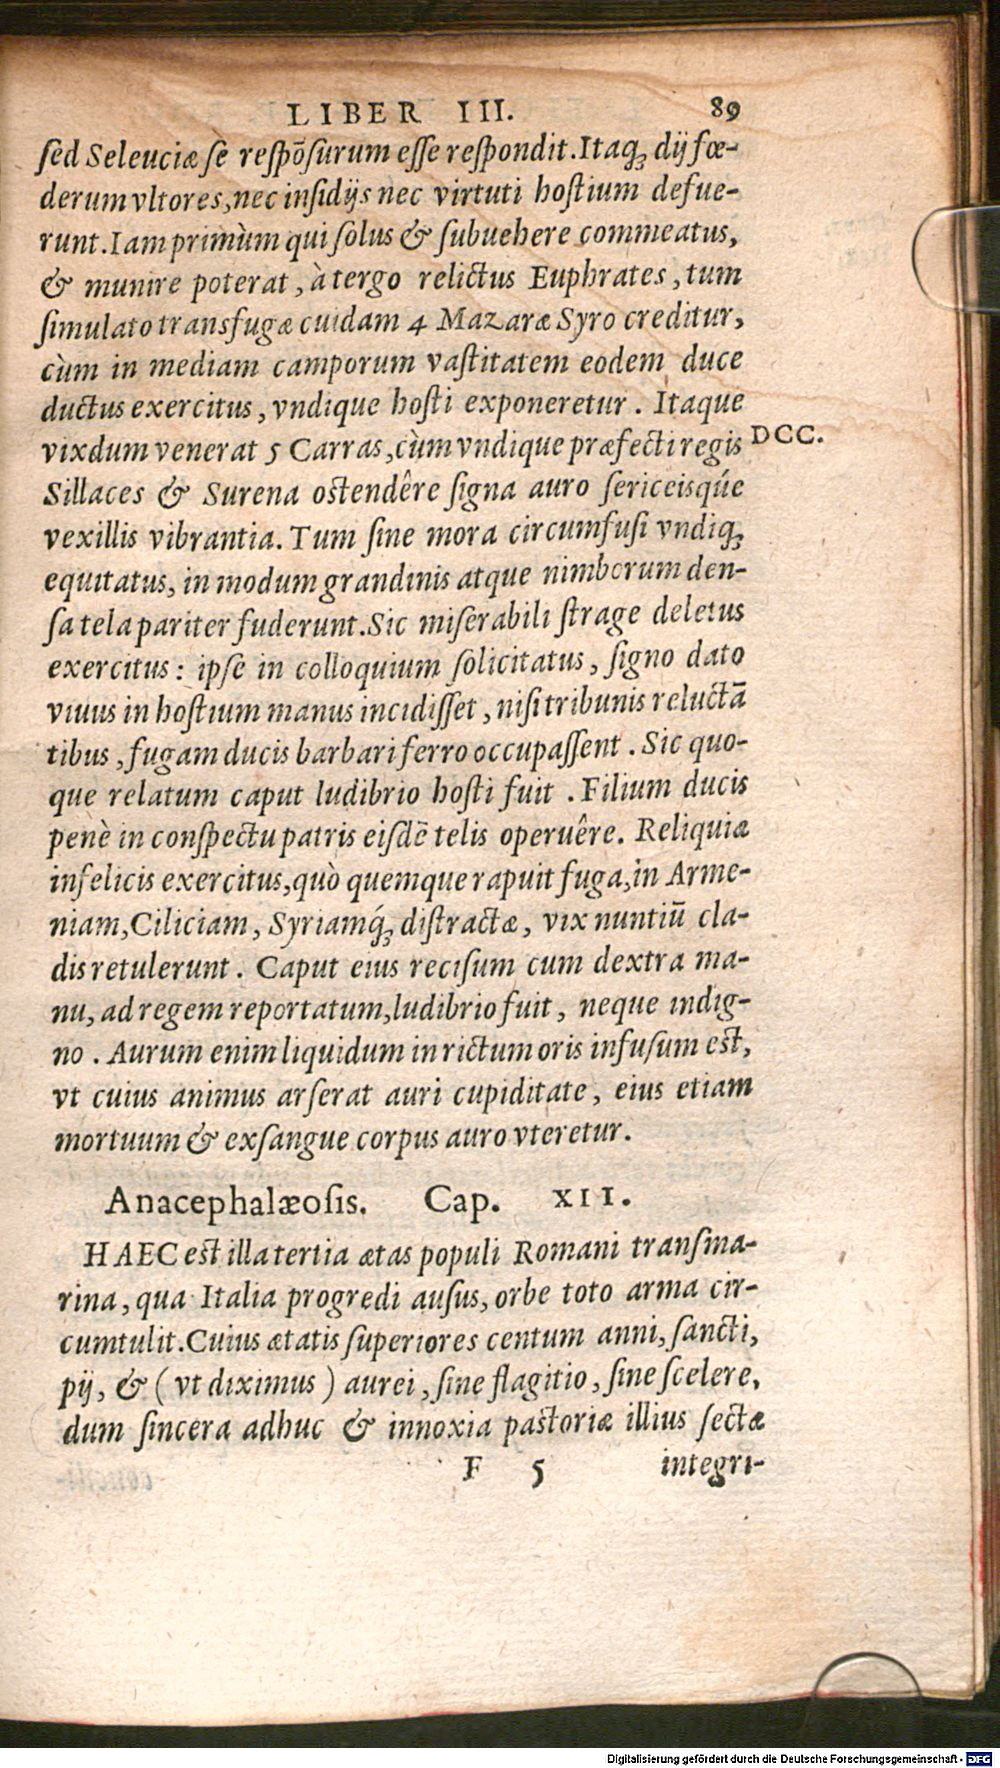 LIBER III. 89
ſed Seleuciæ ſè reſpõſurum eſſe reſpondit. Itaq; dij fœ-
derum vltores, nec inſidijs nec virtuti hoſtium defue-
runt. Iam primùm qui ſolus & ſubuehere commeatus,
& munire poterat, à tergo relictus Euphrates, tum
ſimulato transfugæ cuidam 4 Mazaræ Syro creditur,
cùm in mediam camporum vaſtitatem eodem duce
ductus exercitus, vndique hoſti exponeretur. Itaque
vixdum venerat 5 Carras, cùm vndique præfecti regis DCC.
Sillaces & Surena oſtendêre ſigna auro ſericeisq́ue
vexillis vibrantia. Tum ſine mora circumfuſi vndiq;
equitatus, in modum grandinis atque nimborum den-
ſa tela pariter fuderunt. Sic miſerabili ſtrage deletus
exercitus: ipſe in colloquium ſolicitatus, ſigno dato
viuus in hoſtium manus incidiſſet, niſi tribunis reluctã
tibus, fugam ducis barbari ferro occupaſſent. Sic quo-
que relatum caput ludibrio hoſti fuit. Filium ducis
penè in conſpectu patris eiſdẽ telis operuêre. Reliquiæ
infelicis exercitus, quò quemque rapuit fuga, in Arme-
niam, Ciliciam, Syriamq́; diſtractæ, vix nuntiũ cla-
dis retulerunt. Caput eius reciſum cum dextra ma-
nu, ad regem reportatum, ludibrio fuit, neque indig-
no. Aurum enim liquidum in rictum oris infuſum eſt,
vt cuius animus arſerat auri cupiditate, eius etiam
mortuum & exſangue corpus auro vteretur.
Anacephalæoſis. Cap. XII.
HAEC eſt illa tertia ætas populi Romani tranſma-
rina, qua Italia progredi auſus, orbe toto arma cir-
cumtulit. Cuius ætatis ſuperiores centum anni, ſancti,
pij, & (vt diximus) aurei, ſine flagitio, ſine ſcelere,
dum ſincera adhuc & innoxia paſtoriæ illius ſectæ
F 5 integri-
Digitalisierung gefördert durch die Deutsche Forschungsgemeinschaft - DFG